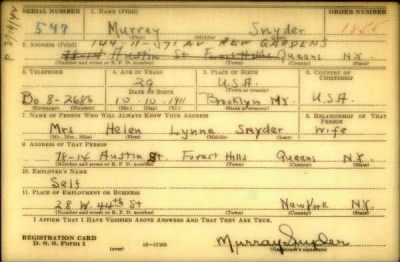 SERIAL NUMBER 1. NAME (Print) ORDER NUMBER
547 Murray Snyder
(First) (Middle) (Last)
144-11- 71 AV KEW GARDENS
2. ADDRESS (Print)
78-14 Austin St Forest Hills Queens N.Y.
(Number and street or R. F. D. number) (Town) (County) (State)
3. TELEPHONE 4. AGE IN YEARS 5. PLACE OF BIRTH 6. COUNTRY OF CITIZENSHIP
29 Queens
DATE OF BIRTH
Bo 8-2686 10 10 1911 Brooklyn N.Y. U.S.A.
(Exchange) (Number) (Mo.) (Day) (Yr.) (Town) (County) (State or country)
7. NAME OF PERSON WHO WILL ALWAYS KNOW YOUR ADDRESS 8. RELATIONSHIP OF THAT PERSON
Mrs Helen Lynne Snyder Wife
(Mr., Mrs., Miss) (First) (Middle) (Last)
9. ADDRESS OF THAT PERSON
78-14 Austin St. Forest Hills Queens N.Y.
(Number and street or R. F. D. number) (Town) (County) (State)
10. EMPLOYER'S NAME
Self
11. PLACE OF EMPLOYMENT OR BUSINESS
28 W. 44th St New York N.Y.
(Number and street or R. F. D. number) (Town) (County) (State)
I AFFIRM THAT I HAVE VERIFIED ABOVE ANSWERS AND THAT THEY ARE TRUE.
REGISTRATION CARD
D. S. S. Form 1 (over) 16-17105 Murray Snyder
(Registrant's signature)